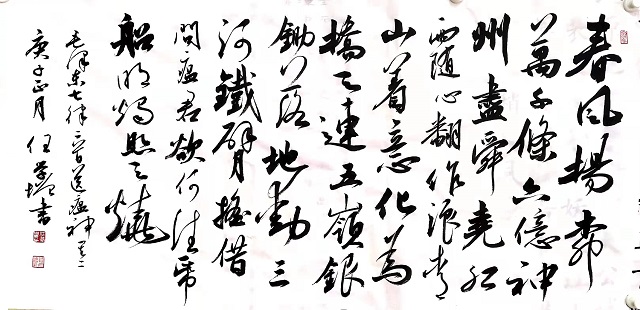 春風楊柳
萬千條六億神
州盡舜堯紅
雨隨心翻作浪青
山着意化為
橋天連五嶺銀
鋤落地動三
河鐵臂搖借
問瘟君欲何往紙
船明燭照天燒
毛澤東七律二首送瘟神其二
庚子正月任書